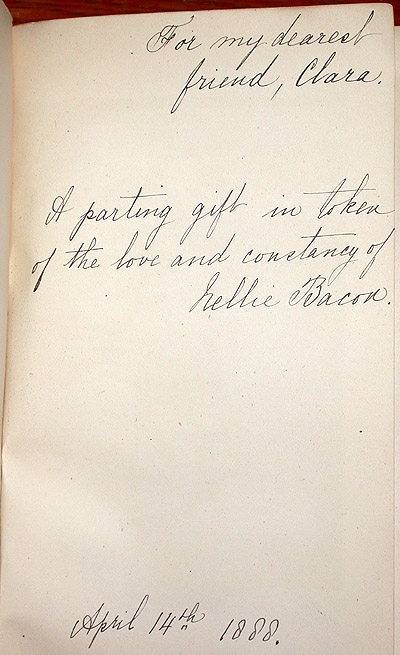 For my dearest
friend, Clara.
A parting gift in token
of the love and constancy of
Nellie Bacon.
April 14th 1888.